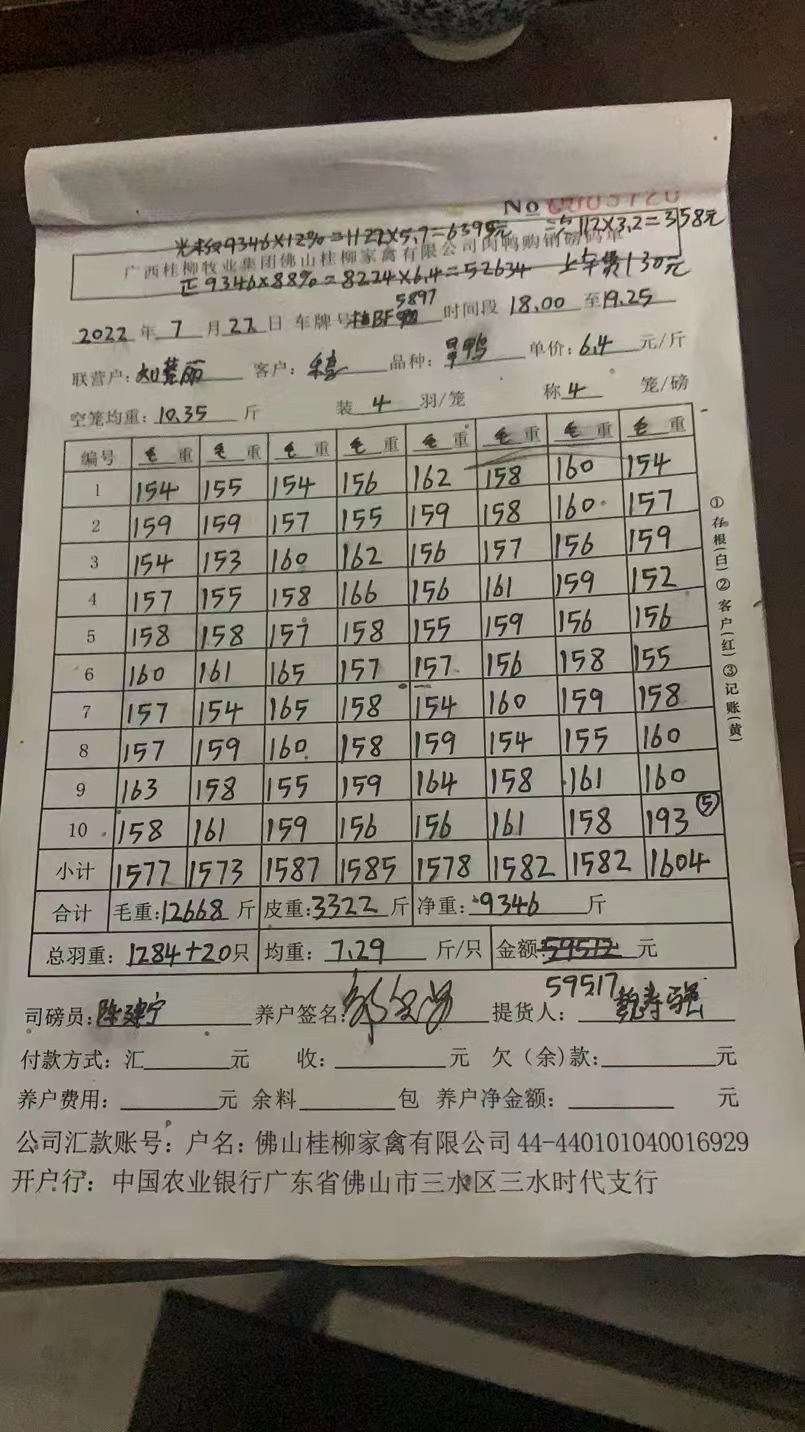 No 0005120
9346×12%=1122×5.7=6395元 次112×3.2=358元
广西桂柳牧业集团佛山桂柳家禽有限公司肉鸭购销磅码单
正9346×88%=8224×6.4=52634 上车费130元
5897
2022年7月27日 车牌号 时间段18.00至19.25
联营户: 客户: 品种:旱鸭 单价:6.4元/斤
空笼均重:10.35斤 装4羽/笼 称4笼/磅
编号 毛重 毛重 毛重 毛重 毛重 毛重 毛重 毛重
1 154 155 154 156 162 158 160 154
2 159 159 157 155 159 158 160 157
3 154 153 160 162 156 157 156 159
4 157 155 158 166 156 161 159 152
5 158 158 157 158 155 159 156 156
6 160 161 165 157 157 156 158 155
7 157 154 165 158 154 160 159 158
8 157 159 160 158 159 154 155 160
9 163 158 155 159 164 158 161 160
10 158 161 159 156 156 161 158 193 ⑤
小计 1577 1573 1587 1585 1578 1582 1582 1604
合计 毛重:12668斤 皮重:3322斤 净重:9346斤
总羽重:1284+20只 均重:7.29斤/只 金额:59512元
59517
司磅员:陈建宁 养户签名: 提货人:
付款方式:汇 元 收: 元 欠(余)款: 元
养户费用: 元 余料 包 养户净金额: 元
公司汇款账号:户名:佛山桂柳家禽有限公司44-440101040016929
开户行:中国农业银行广东省佛山市三水区三水时代支行
①存根(白)②客户(红)③记账(黄)